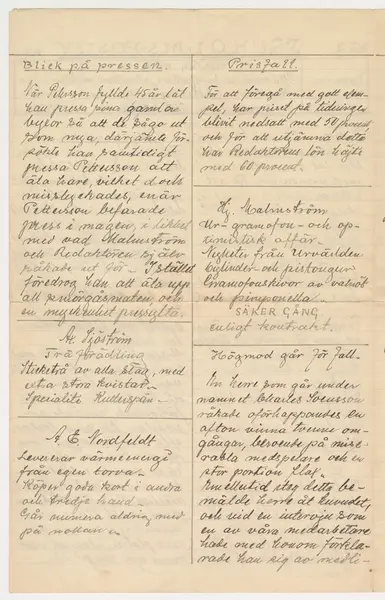 Blick på pressen.
När Petersson fyllde 45 år lät
han pressa sina gamla
byxor så att de sågo ut
som nya, därjämte för-
sökte han samtidigt
pressa Pettersson att
äta hare, vilket dock
misslyckades, enär
Pettersson befarade
press i magen, i likhet
med vad Malmström
och Redaktören själv
råkade ut för. I stället
föredrog han att äta upp
allt på smörgåsmaten, och
en mycket het pressylta.
A. Sjöström
Träförädling
Stickträ av alla slag, med
extra stora kvistar.
Specialité Kullerspån.
A. E. Nordfeldt
Levererar värmeenergi
från egen torva.
Köper goda kort i andra
och tredje hand.
Går numera aldrig med
på nottarna.
Prisfall.
För att föregå med gott exem-
pel, har priset på tidningen
blivit nedsatt med 50 procent
och för att utjämna detta
har Redaktörens lön höjts
med 60 procent.
Hj. Malmström
Ur- gramofon- och op-
timistisk affär.
Nyheter från Urvärlden
Cylinder- och pistongur
Gramofonskivor av valnöt
och primponella.
SÄKER GÅNG
enligt kontrakt.
Högmod går för fall.
En herre som går under
namnet Charles Svensson
råkade oförhappandes en
afton vinna tvenne om-
gångar, beroende på mise-
rabla medspelare och en
stor portion "flax".
Emellertid steg detta be-
mälde herre åt huvudet,
och vid en intervju som
en av våra medarbetare
hade med honom förkla-
rade han sig av medli-